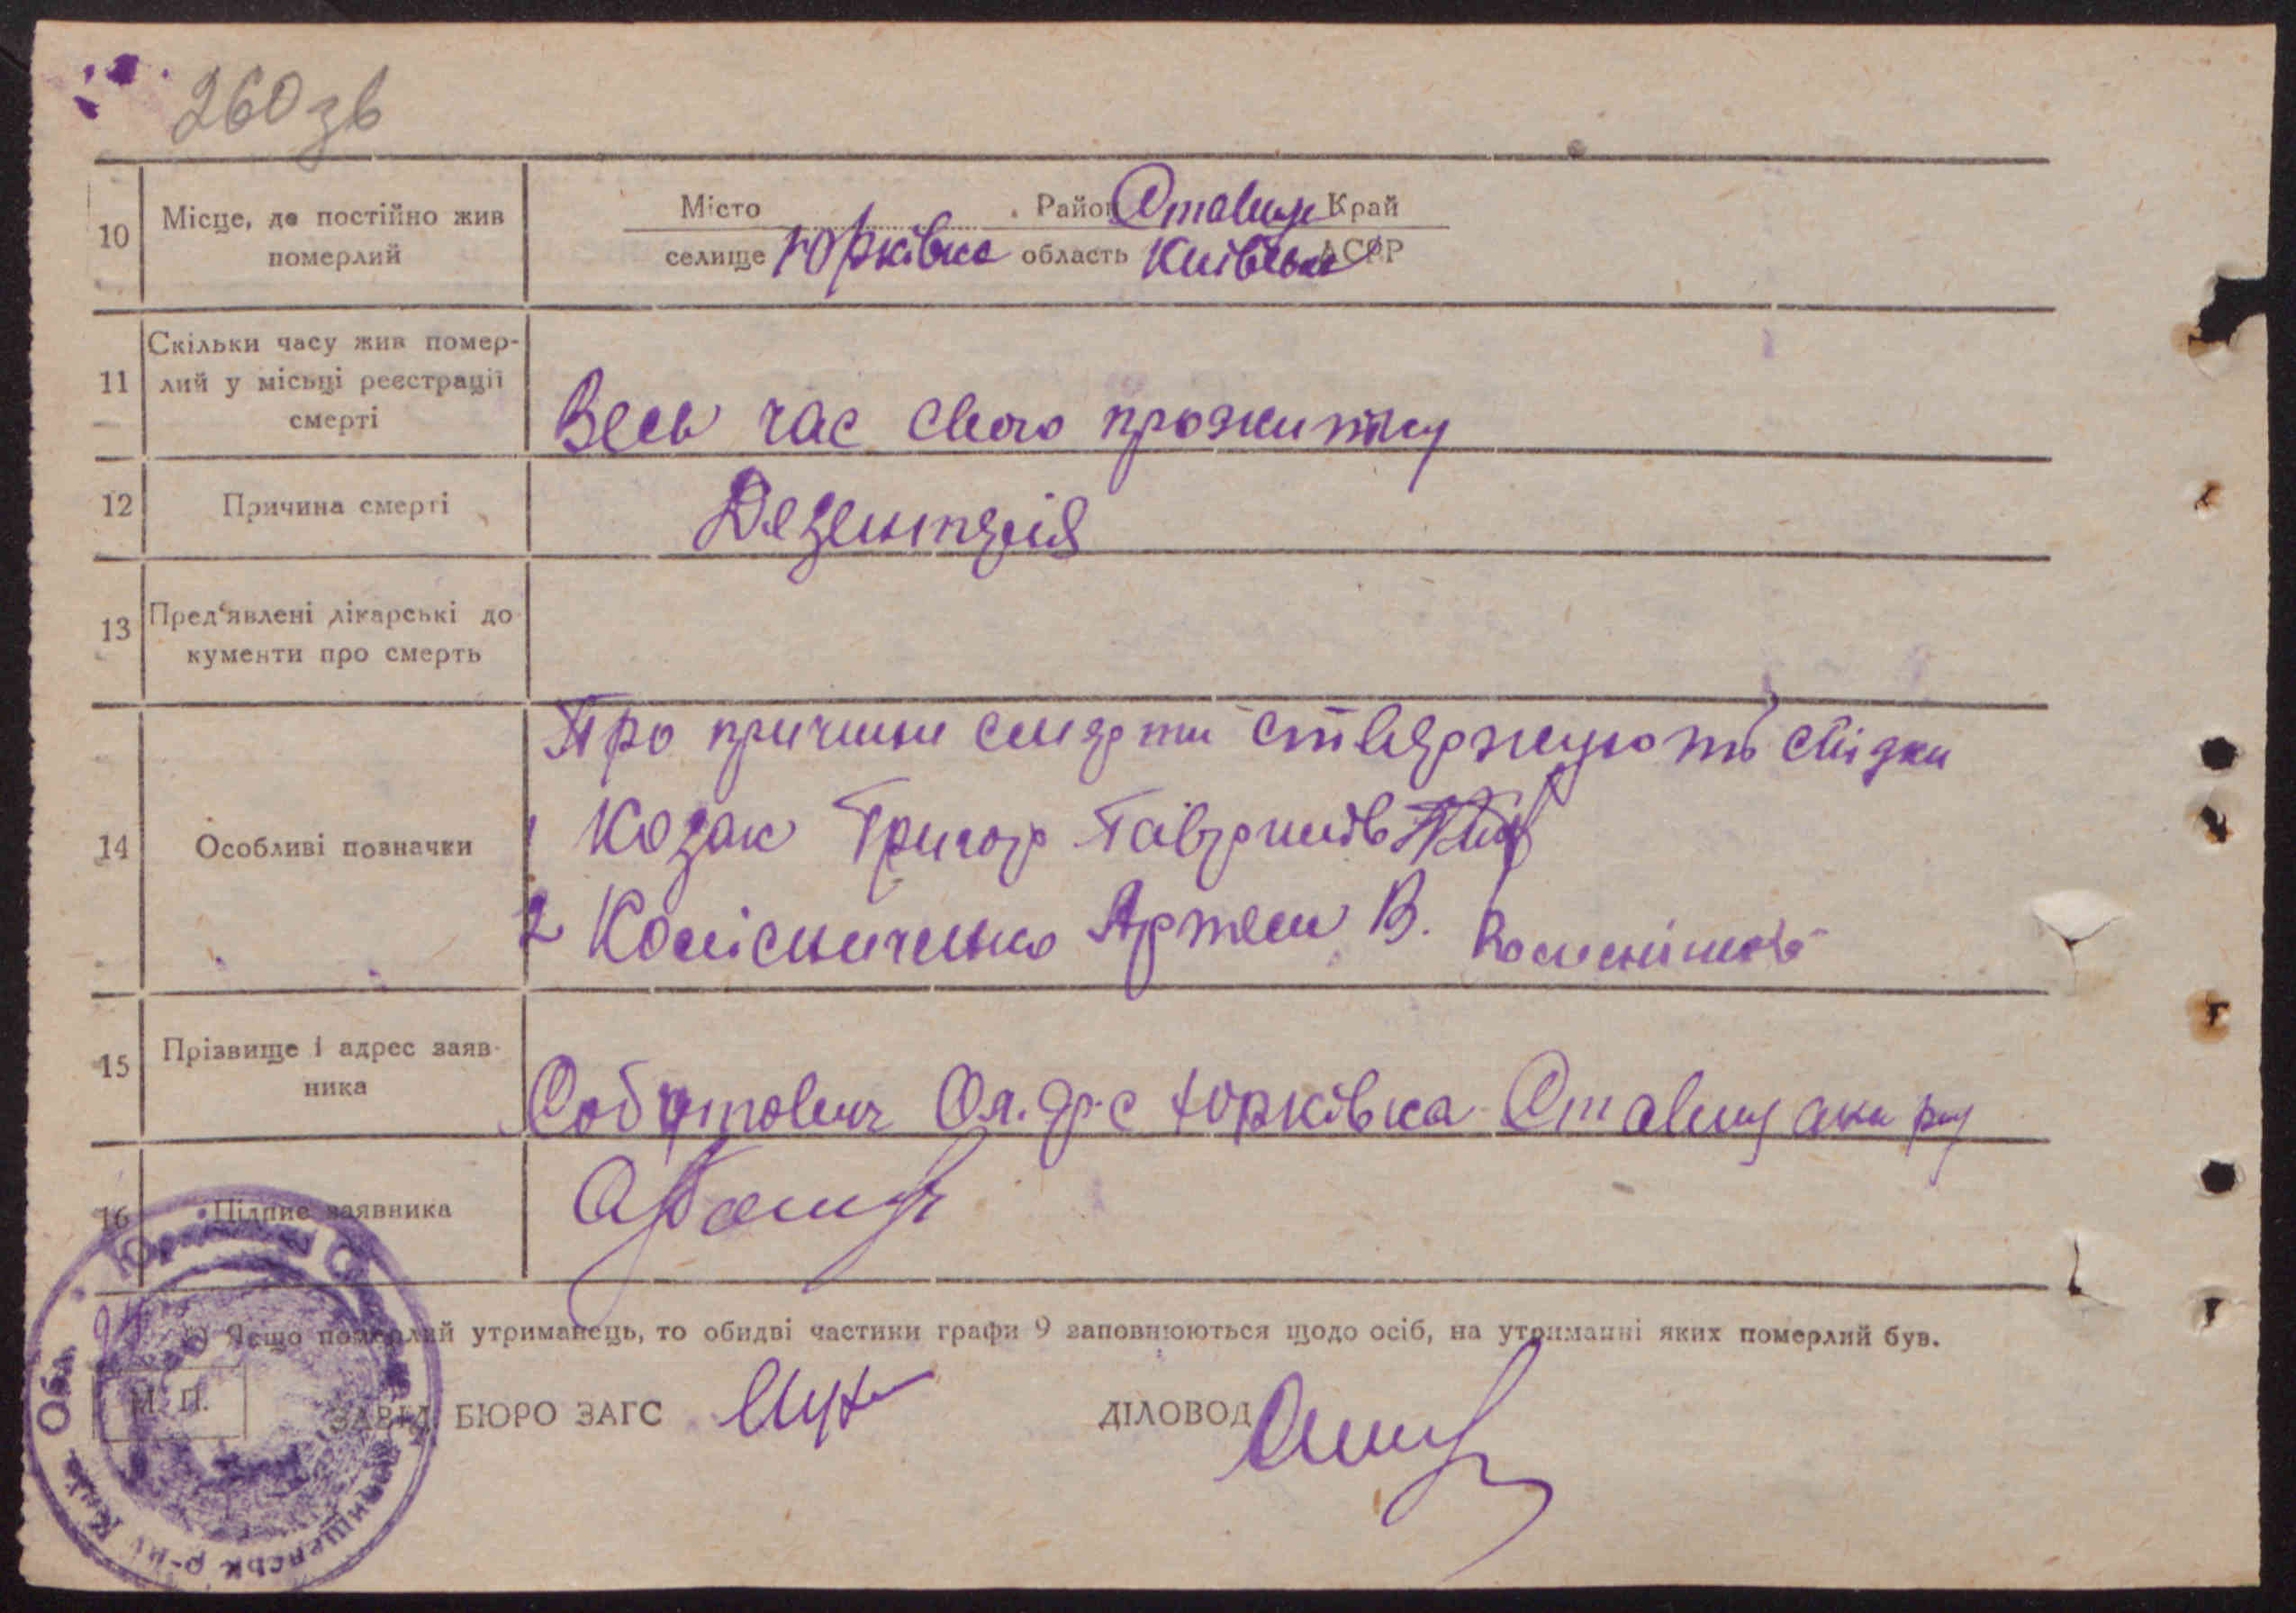 260 зв
10 Місце, де постійно жив померлий
Місто Район Ставищ Край
селище Юрківка область Київська АСРР
11 Скільки часу жив помер-
лий у місьці реєстрації
смерті
Весь час свого прожитку
12 Причина смерті
Дезентерія
13 Пред'явлені лікарські до
кументи про смерть
14 Особливі позначки
Про причини смерти стверджують свідки
1 Козак Григор Гаврилів
2 Колісниченко Артем В.
15 Прізвище і адрес заяв-
ника
Ол. др. с Юрківка Ставищ
16 Підпис заявника
*) Якщо померлий утриманець, то обидві частини графи 9 заповнюються щодо осіб, на утриманні яких померлий був.
М. П.
ЗАВІД. БЮРО ЗАГС ДІЛОВОД